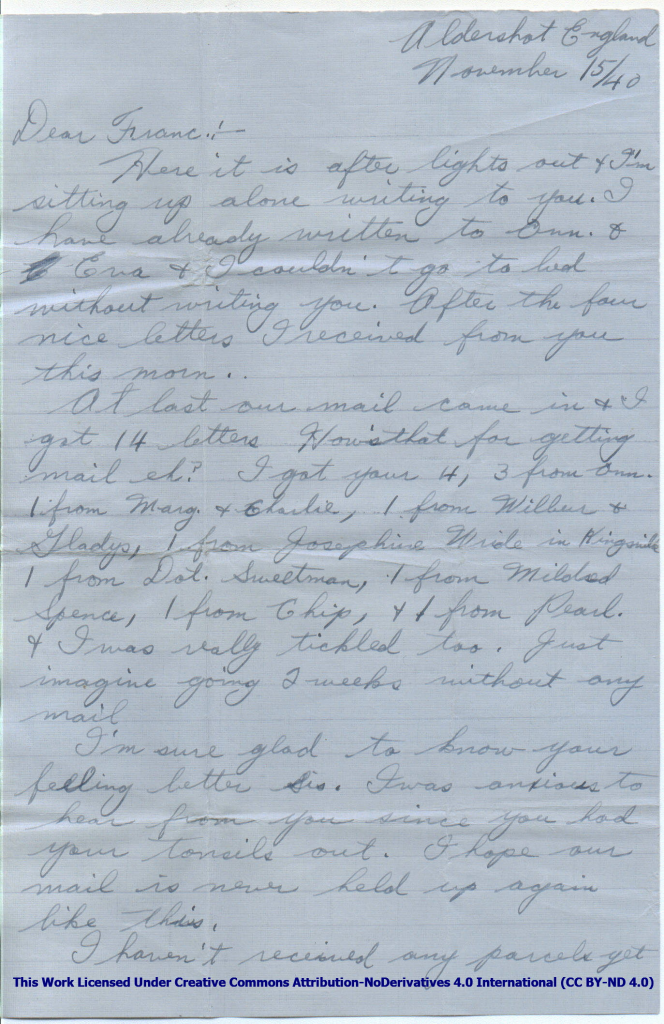 Aldershot England
November 15/40
Dear Franc.:—
Here it is after lights out & I'm
sitting up alone writing to you. I
have already written to Ann. &
Eva & I couldn't go to bed
without writing you. After the four
nice letters I received from you
this morn..
At last our mail came in & I
got 14 letters How'sthat for getting
mail eh? I got your 4, 3 from Ann.
1 from Marg. & Charlie, 1 from Wilbur &
Gladys, 1 from Josephine Wride in Kingsville
1 from Dot. Sweetman, 1 from Mildred
Spence, 1 from Chip, & 1 from Pearl.
& I was really tickled too. Just
imagine going 2 weeks without any
mail
I'm sure glad to know your
feeling better Sis. I was anxious to
hear from you since you had
your tonsils out. I hope our
mail is never held up again
like this.
I haven't received any parcels yet
This Work Licensed Under Creative Commons Attribution-NoDerivatives 4.0 International (CC BY-ND 4.0)